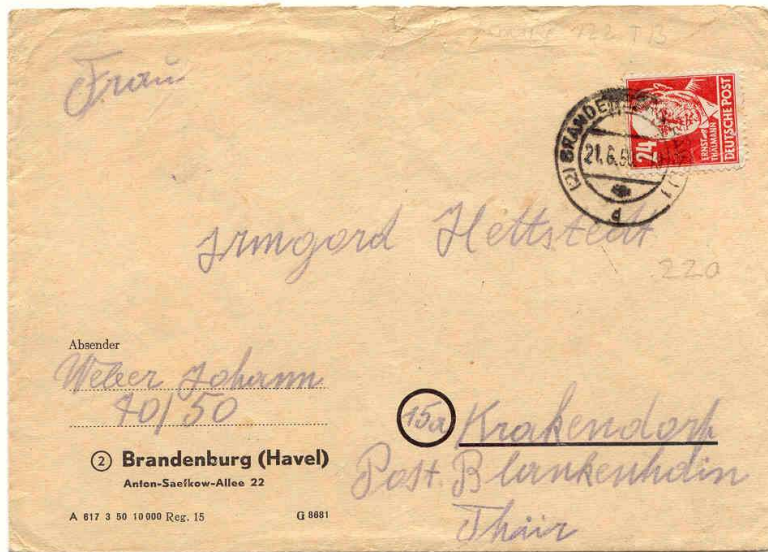 Frau
24
ERNST THÄLMANN
DEUTSCHE POST
(2) BRANDEN
21.6.50
d
Irmgard Hettstedt
220
Absender
Weber Johann
40/50
② Brandenburg (Havel)
Anton-Saefkow-Allee 22
A 617 3 50 10000 Reg. 15 G 8681
15a Krakendorf
Post. Blankenhain
Thür